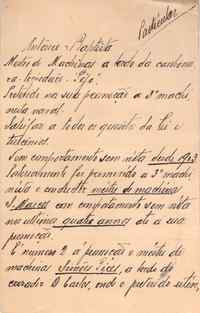 Particular
António Baptista
Mestre de Machinas a bordo da canhonei-
ra-torpedeira "Tejo"
Pretende na sua promoção a 3º machi-
nista naval.
Satisfaz a todos os quesitos da lei e
tirocinios.
Tem comportamento sem nota desde 1903
Interinamente foi promovido a 3º machi-
nista o mestre de machinas
S. Marcos com comportamento sem nota
nos ultimos quatro annos até a sua
promoção.
É numero 2 a promoção o mestre de
machinas Simões Pires, a bordo do
cruzador D. Carlos, onde o